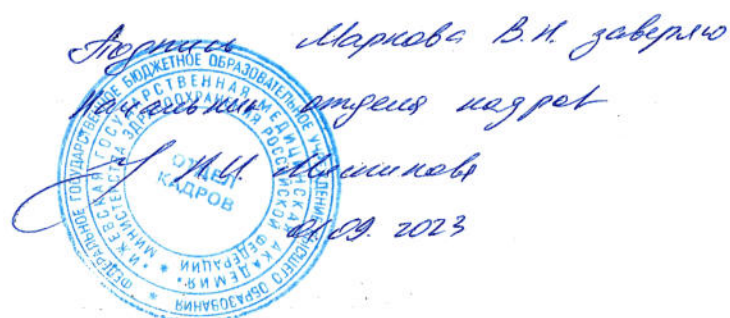 Подпись Маркова В.Н. заверяю
Начальник отдела кадров
Н.И.
01.09.2023
ФЕДЕРАЛЬНОЕ ГОСУДАРСТВЕННОЕ БЮДЖЕТНОЕ ОБРАЗОВАТЕЛЬНОЕ УЧРЕЖДЕНИЕ ВЫСШЕГО ОБРАЗОВАНИЯ *
"ИЖЕВСКАЯ ГОСУДАРСТВЕННАЯ МЕДИЦИНСКАЯ АКАДЕМИЯ" *
МИНИСТЕРСТВА ЗДРАВООХРАНЕНИЯ РОССИЙСКОЙ ФЕДЕРАЦИИ *
ОТДЕЛ
КАДРОВ